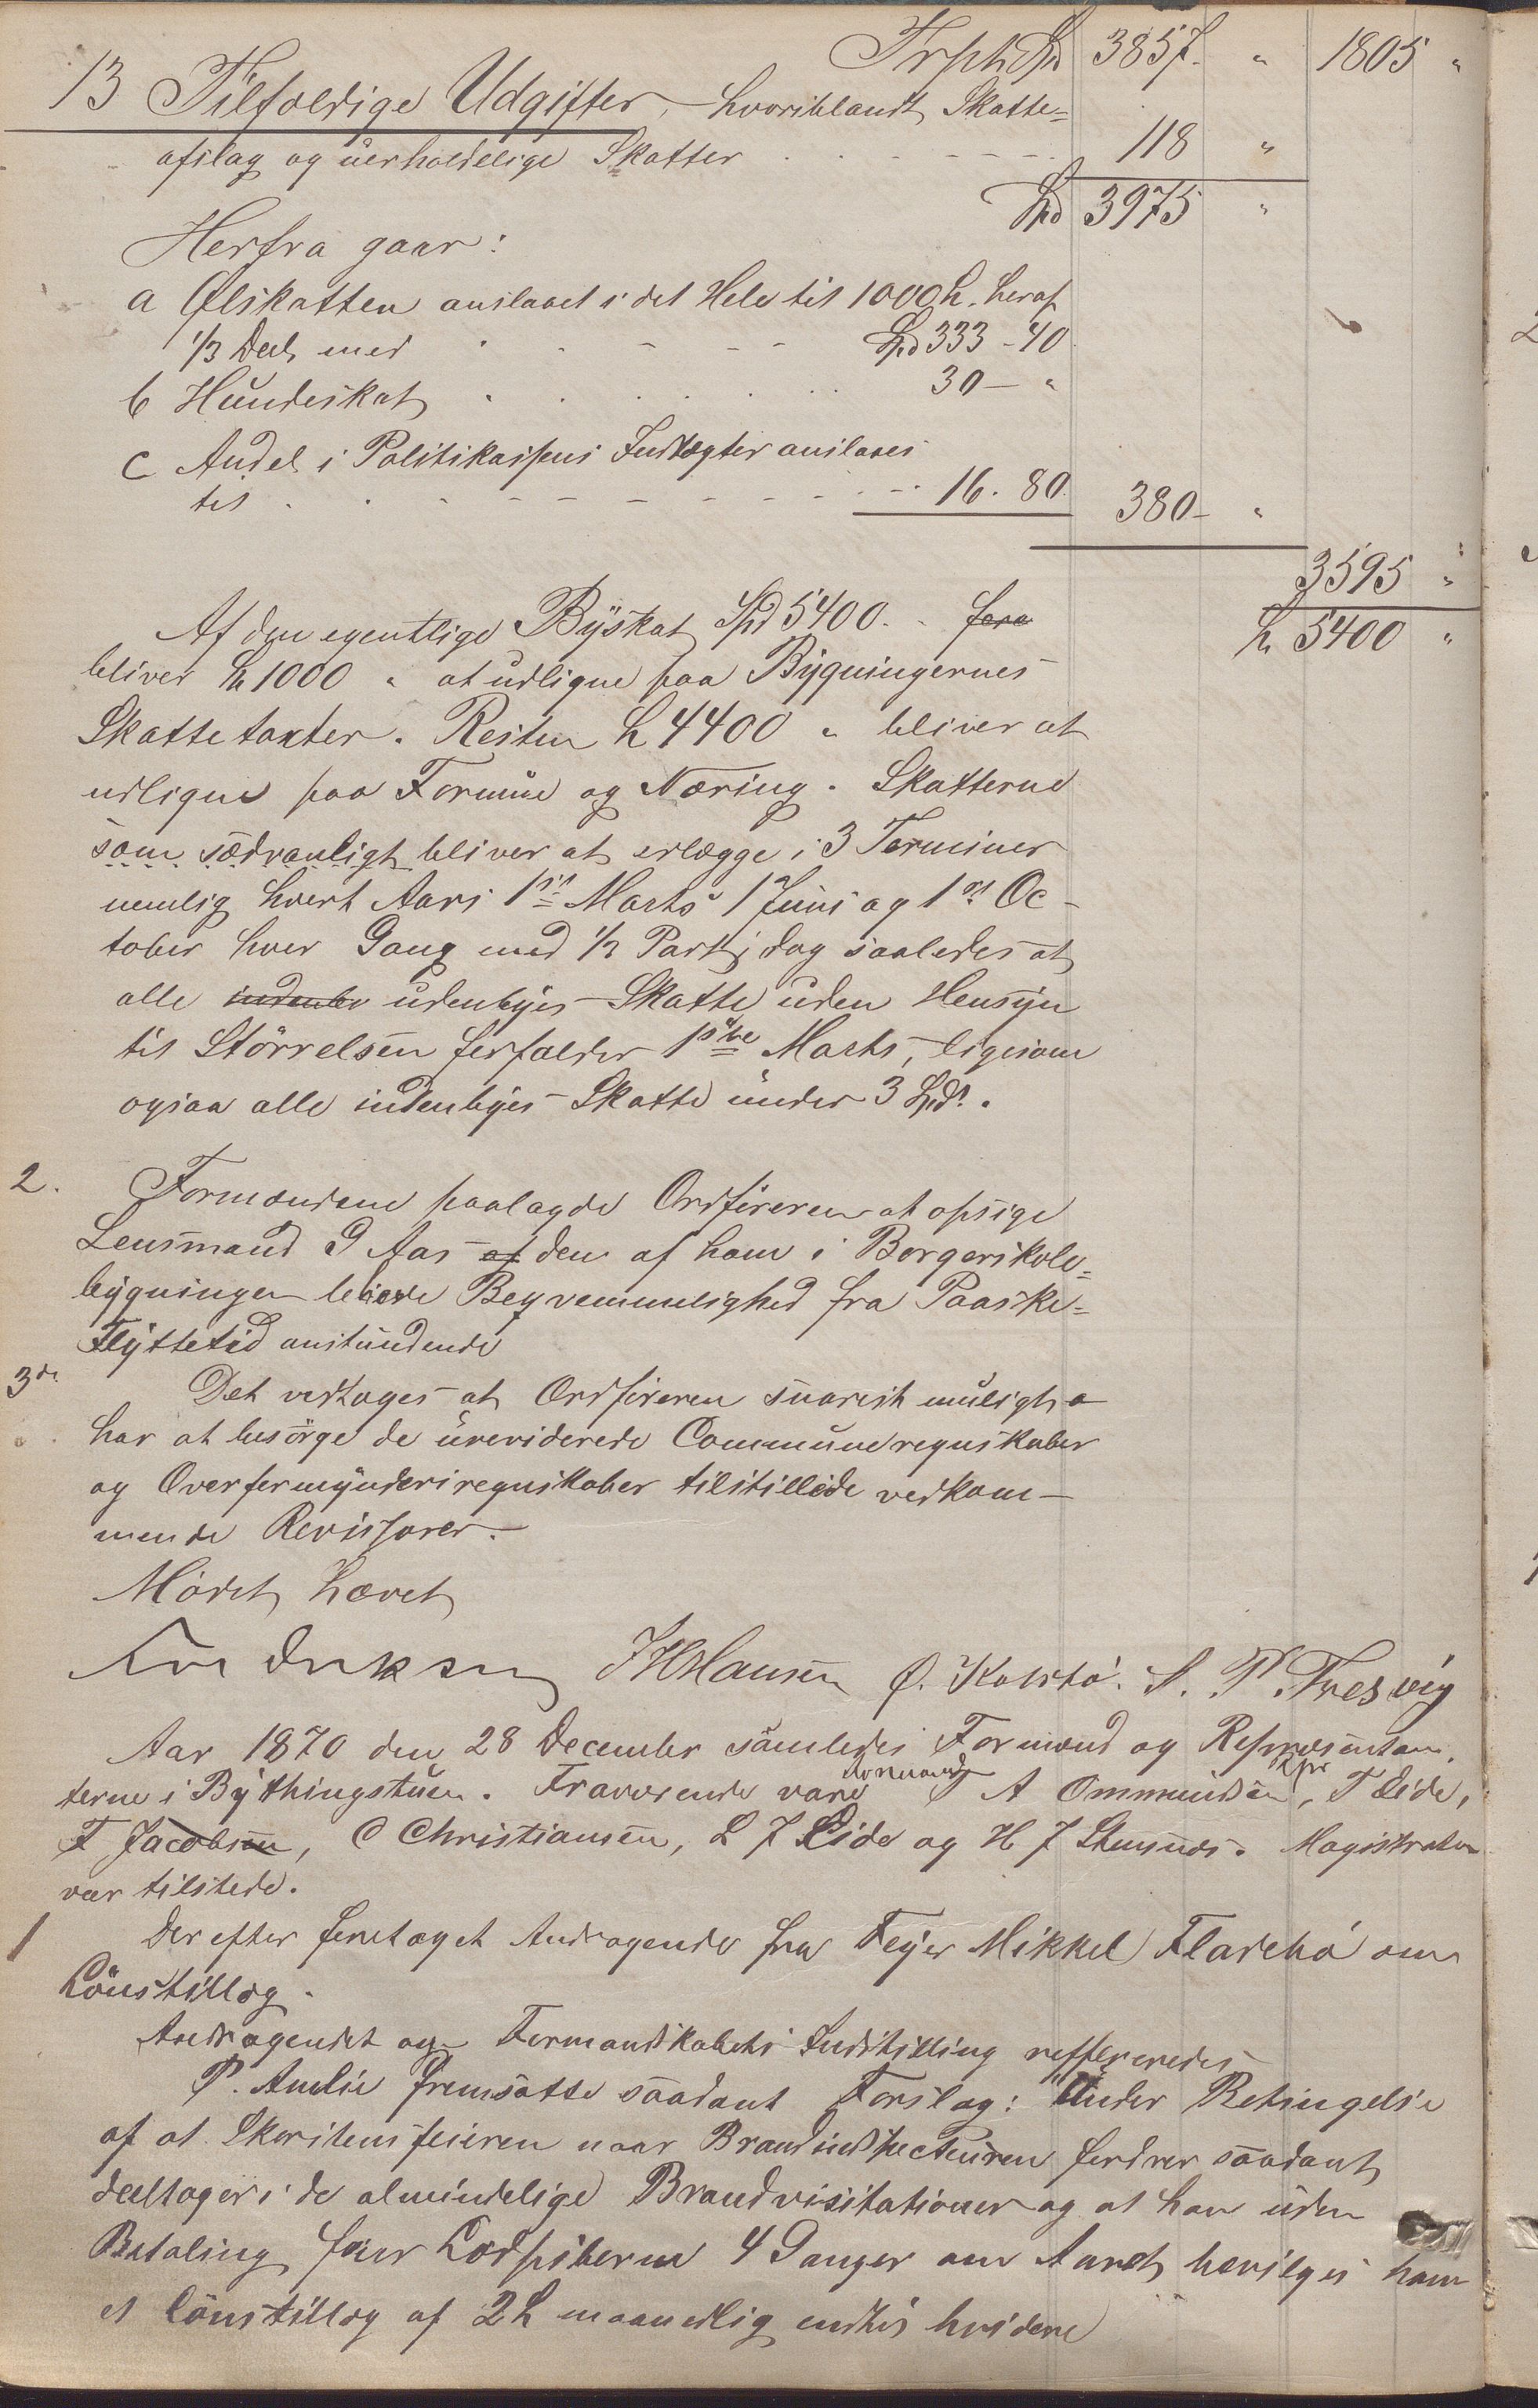 Trpt Spd 3857. " 1805 "
13 Tilfældige Udgifter, hvoriblandt Skatte=
afslag og uerholdelige Skatter . . . . . 118 "
Spd 3975 "
Herfra gaar:
a Ølskatten anslaaet i det Hele til 1000 Spd. heraf
1/3 Deel med . . . . . Spd 333 - 40
b Hundeskat . . . . . . 30 - "
c Andel i Politikassens Indtægter anslaaes
til . . . . . . . . . 16. 80. 380 - "
3595 "
Af den egentlige Byskat Spd 5400. - Spd 5400 "
bliver Spd 1000 " at udligne paa Bygningernes
Skattetaxter. Resten Spd 4400 " bliver at
udligne paa Formue og Næring. Skatterne
som sædvanligt bliver at erlægge i 3 Terminer
nemlig hvert Aars 1ste Marts 1 Juni og 1ste Oc-
tober hver Gang med 1/3 Part, dog saaledes at
alle udenbyes Skatte uden Hensyn
til Størrelsen forfalder 1ste Marts, ligesom
ogsaa alle indenbyes Skatte under 3 Spd.
2. Formændene paalagde Ordføreren at opsige
Lensmand Aas af den af ham i Borgerskole=
bygningen leiede Beqvemmelighed fra Paaske=
Flyttetid anstundende
3die Det vedtages at Ordføreren snarest muligt
har at besørge de ureviderede Communeregnskaber
og Overformynderiregnskaber tilstillede vedkom-
mende Revisorer.
Mødet hævet
JH Hansen Ø. Kolstø. A. P. Tresvig
Aar 1870 den 28 December samledes Formænd og Repræsentan-
terne i Bythingstuen. Fraværende vare Formænd T A Ommundsen, Rpr T Eide,
F Jacobsen, C Christiansen, L J Eide og H J Stensnæs. Magistraten
var tilstede.
1 Derefter foretaget Andragende fra Feier Mikkel Fladehø om
Lønstillæg.
Andragendet og Formandskabets Indstilling reffereredes
P. Amlie fremsatte saadant Forslag: "Under Betingelse
af at Skorstensfeieren naar Brandinspecteuren fordrer saadant
deeltager i de almindelige Brandvisitationer og at han uden
Betaling feier Lodpiberne 4 Gange om Aaret, bevilges ham
et Lønstillæg af 2 Spd maanedlig indtil hvidere